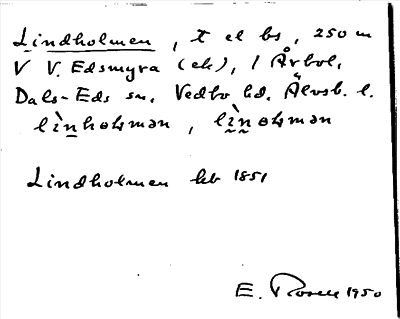 Lindholmen, t el bs, 250 m
V V. Edsmyra (ek), 1 Årbol,
Dals-Eds sn. Vedbo hd. Älvsb. l.
Lindholmen kb 1851
E. Rosell 1950